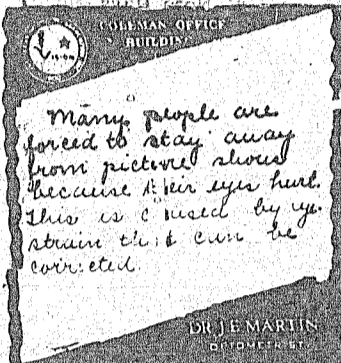 COLEMAN OFFICE
BUILDING
Many people are
forced to stay away
from picture shows
because their eyes hurt.
This is caused by eye
strain that can be
corrected.
DR. J. E. MARTIN
OPTOMETRIST